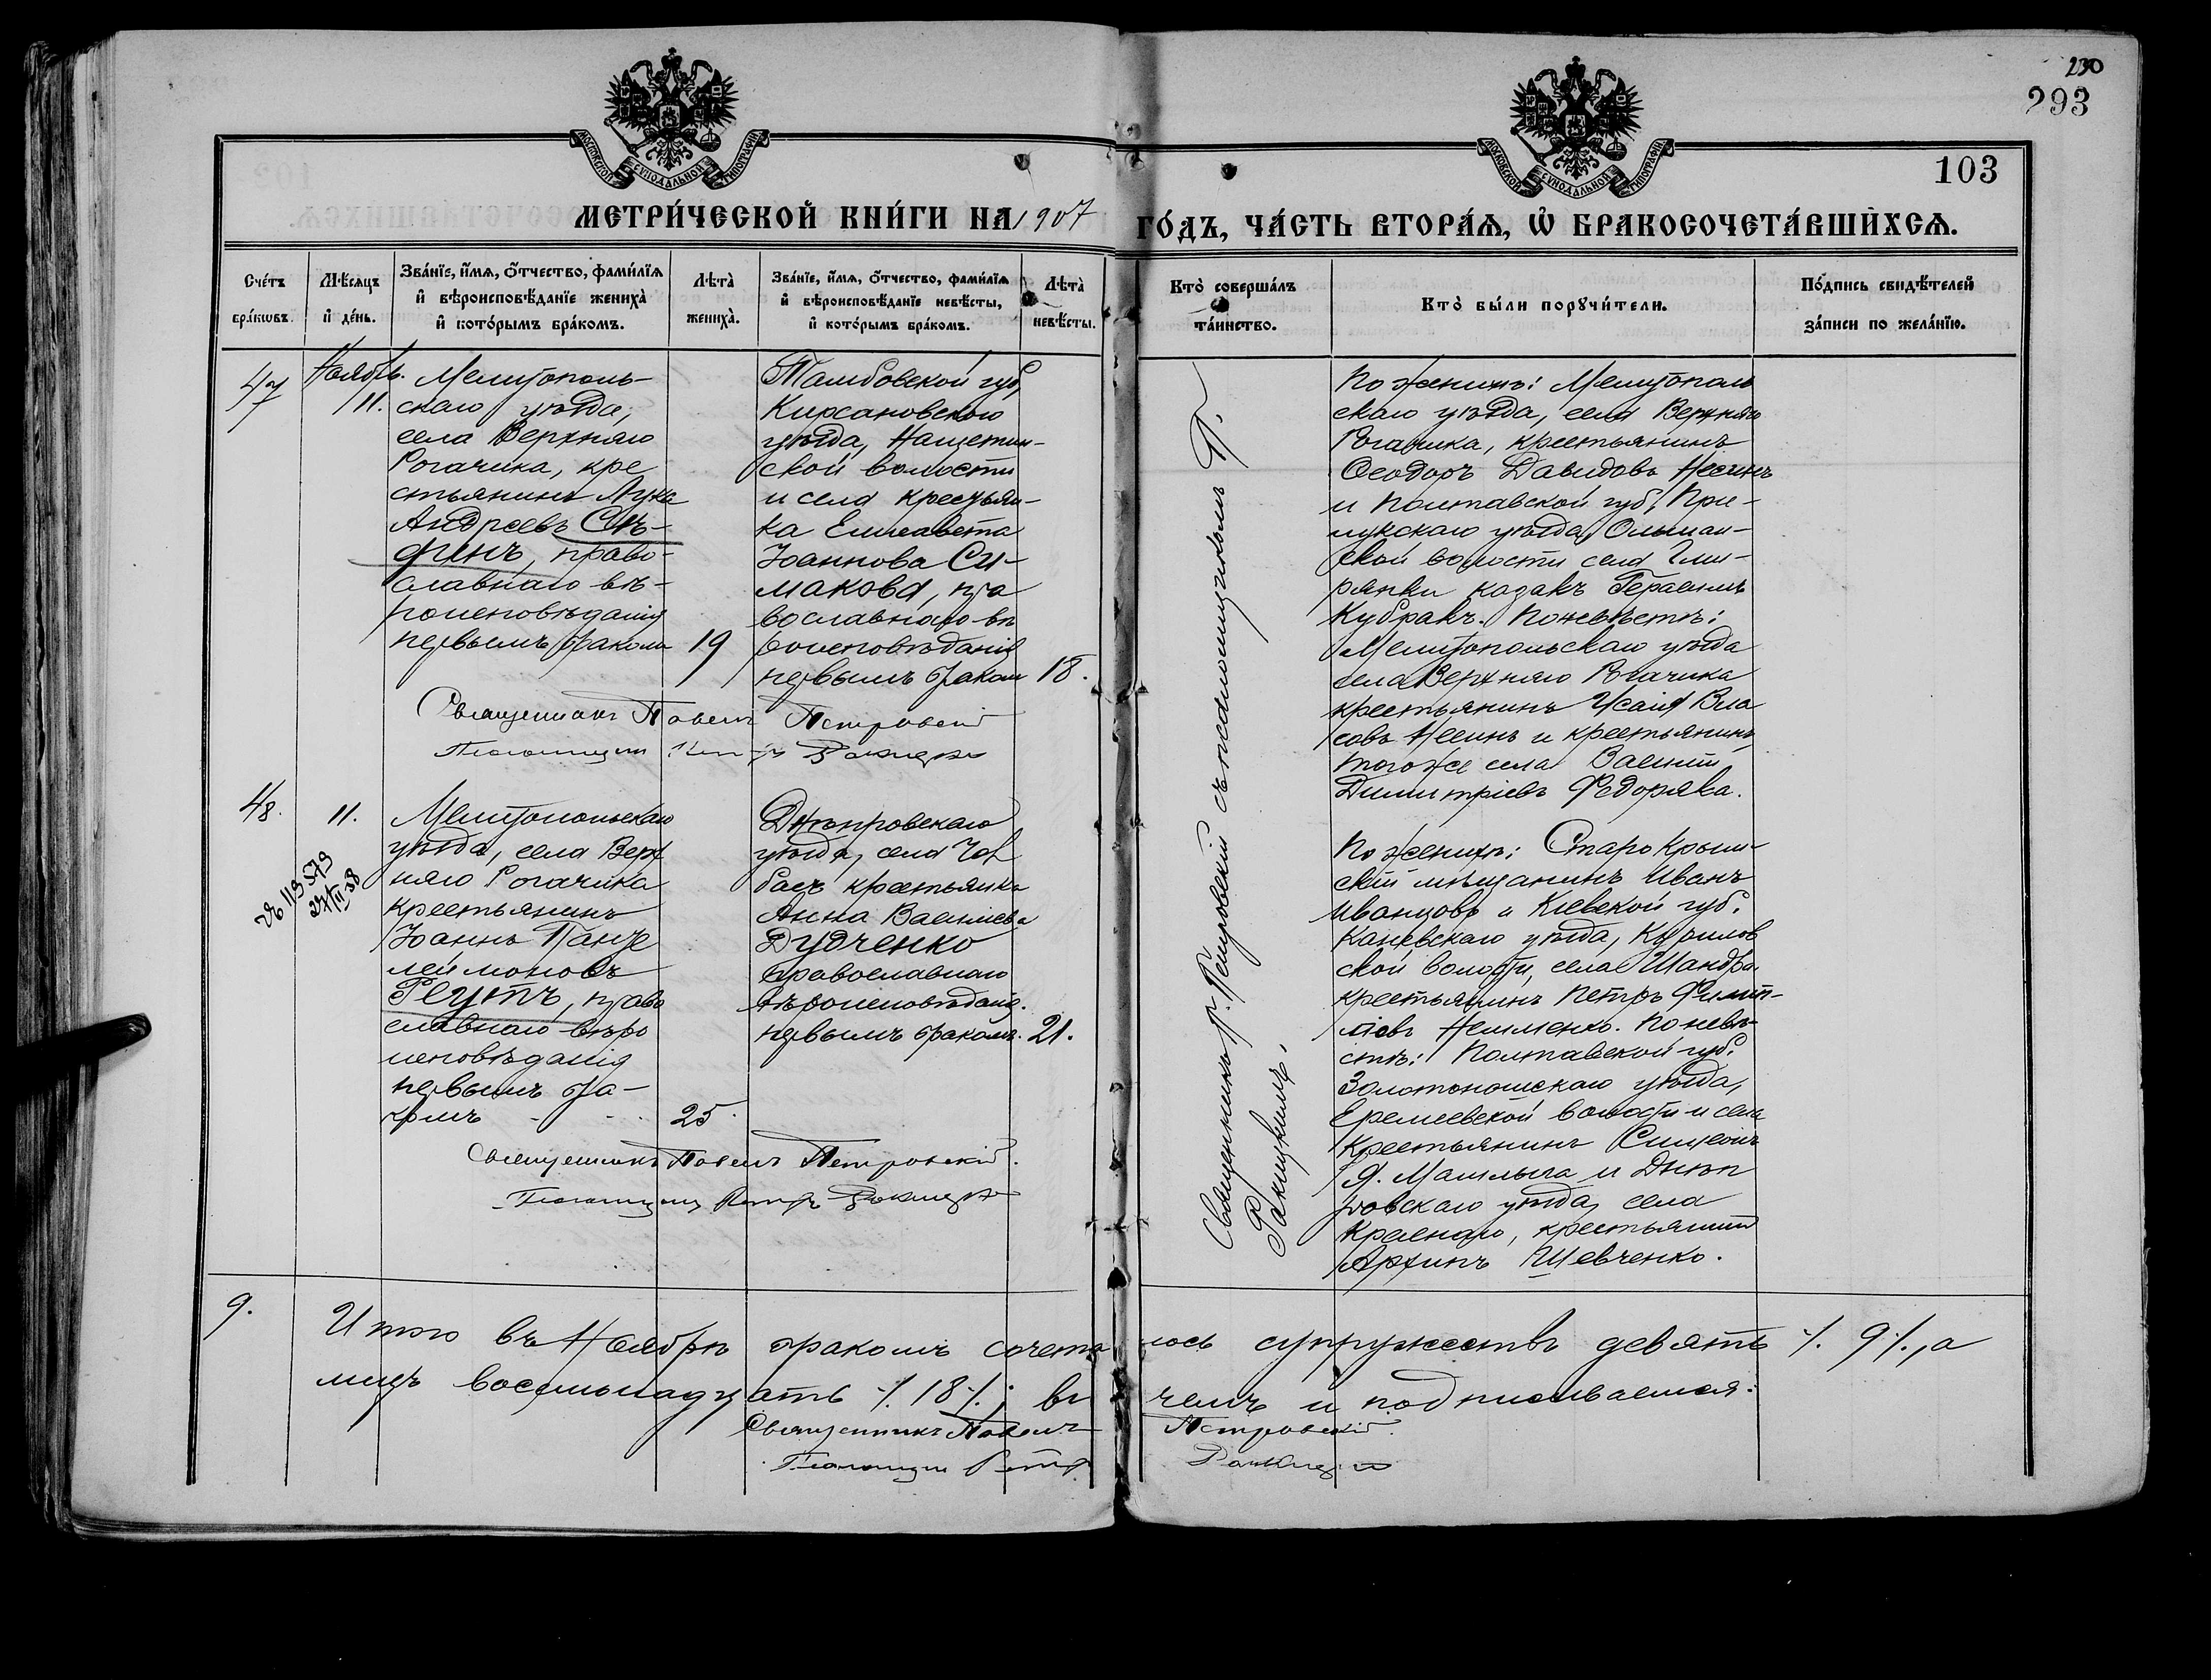 230
293
103
МОСКОВСКОЙ СѴНОДАЛЬНОЙ ТИПОГРАФІИ
МОСКОВСКОЙ СѴНОДАЛЬНОЙ ТИПОГРАФІИ
МЕТРИ́ЧЕСКОЙ КНИ́ГИ НА 1907 ГО́ДЪ, ЧА́СТЬ ВТОРА́Ѧ, Ѡ҆ БРАКОСОЧЕТА́ВШИХСѦ.
Сче́тъ
бра́кѡвъ.
Мѣ́сяцъ
и҆ де́нь.
Зва́нїе, и҆́мѧ, ѻ҆́тчество, фами́лїѧ
и҆ вѣроисповѣ́данїе жениха̀
и҆ кото́рымъ бра́комъ.
Лѣта̀
жениха̀.
Зва́нїе, и҆́мѧ, ѻ҆́тчество, фами́лїѧ
и҆ вѣроисповѣ́данїе невѣ́сты,
и҆ кото́рымъ бра́комъ.
Лѣта̀
невѣ́сты.
Кто̀ соверша́лъ
та́инство.
Кто̀ бы́ли порꙋчи́тели.
По́дпись свидѣ́телей
за́писи по жела́нїю.
47
Ноябрь.
11.
Мелитополь-
скаго уѣзда,
села Верхняго
Рогачика, кре
стьянинъ Лука
Андреевъ Сѣ-
финъ, право-
славнаго вѣ-
роисповѣданія
первымъ бракомъ
19
Тамбовской губ,
Кирсановского
уѣзда, Нащетин-
ской волости
и села крестьян-
ка Елисавета
Іоаннова Си-
макова, пра
вославнаго вѣ
роисповѣданія
первымъ бракомъ
18.
Священникъ Павелъ Петровскій
Псаломщикъ Петръ Ракицкій
Священникъ П. Петровскій съ псаломщикомъ П.
Ракицкимъ.
По женихѣ: Мелитополь
скаго уѣзда, села Верхняго
Рогачика, крестьянинъ
Ѳеодоръ Давидовъ Несинъ
и Полтавской губ, При-
лукскаго уѣзда, Ольшан-
ской волости села Гми-
рянки казакъ Герасимъ
Кубракъ. По невѣстѣ:
Мелитопольскаго уѣзда
села Верхняго Рогачика
крестьянинъ Исаія Вла
совъ Несинъ и крестьянинъ
того же села Василій
Димитріевъ Федоряка.
48.
11.
113579
27/II-38
Мелитопольскаго
уѣзда, села Верх
няго Рогачика
крестьянинъ
Іоаннъ Панте
леймоновъ
Реутъ, право
славнаго вѣро
исповѣданія
первымъ бра-
комъ
25.
Днѣпровскаго
уѣзда, села Чал
басъ крестьянка
Анна Васильева
Дудченко
православнаго
вѣроисповѣданія.
первымъ бракомъ.
21.
Священникъ Павелъ Петровскій.
Псаломщикъ Петръ Ракицкій
По женихѣ: Старо Крым-
скій мѣщанинъ Иванъ
Иванцовъ и Кіевской губ.
Каневскаго уѣзда, Курилов
ской волости, села Шандра
крестьянинъ Петръ Филип-
повъ Немменко. По невѣ-
стѣ: Полтавской губ.
Золотоношскаго уѣзда,
Еремеевской волости и села
крестьянинъ Симеонъ
и Днѣп
ровскаго уѣзда, села
Краснаго, крестьянинъ
Архипъ Шевченко.
9.
Итого въ Ноябрѣ бракомъ сочеталось супружествъ девять ./. 9 ./., а
лицъ восемьнадцать ./. 18 ./.; въ чемъ и подписываемся:
Священникъ Павелъ Петровскій.
Псаломщикъ Петръ Ракицкій